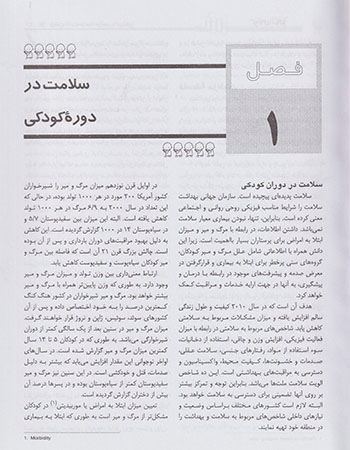 فصل
۱
سلامت در
دورهٔ کودکی
سلامت در دوران کودکی
سلامت پدیده‌ای پیچیده است. سازمان جهانی بهداشت
سلامت را شرایط مناسب فیزیکی روحی روانی و اجتماعی
معنی کرده است. بنابراین، تنها، نبودن بیماری معیار سلامت
نمی‌باشد. داشتن اطلاعات، در رابطه با مرگ و میر و میزان
ابتلا به امراض برای پرستاران بسیار بااهمیت است، زیرا این
دانش همراه با اطلاعاتی شامل علل مرگ و میر کودکان،
گروه‌های سنی پرخطر برای ابتلا به بیماری و قرارگرفتن در
معرض صدمه و پیشرفت‌های موجود در رابطه با درمان و
پیشگیری، به آنها در جهت ارایه خدمات و مراقبت کمک
خواهد کرد.
هدف آن است که در سال ۲۰۱۰ کیفیت و طول زندگی
سالم افزایش یافته و میزان مشکلات مربوط به سلامتی
کاهش یابد. شاخص‌های مربوط به سلامتی در رابطه با میزان
فعالیت فیزیکی، افزایش وزن و چاقی، استفاده از دخانیات،
سوء استفاده از مواد، رفتارهای جنسی، سلامت عقلی،
صدمات و خشونت‌ها، کیفیت محیط، واکسیناسیون و
دسترسی به مراقبت‌های بهداشتی است. این ده شاخص
الویت سلامت ملت‌ها می‌باشد. بنابراین توجه و تمرکز بیشتر
بر روی آنها تضمینی برای دسترسی به سلامت خواهد بود.
البته لازم است کشورهای مختلف براساس وضعیت و
نیازهای داخلی شاخص‌های مربوط به سلامت و بهداشت را
در منطقه خود تهیه نمایند.
در اوایل قرن نوزدهم میزان مرگ و میر را شیرخواران
کشور آمریکا ۲۰۰ مورد در هر ۱۰۰۰ تولد بوده، در حالی که
این تعداد در سال ۲۰۰۰ به ۶/۹ مرگ در هر ۱۰۰۰ تولد
کاهش یافته است. البته این میزان بین سفیدپوستان ۵/۷ و
در سیاه‌پوستان ۱۴ در ۱۰۰۰ گزارش گردیده است. این کاهش
به دلیل بهبود مراقبت‌های دوران بارداری و پس از آن بوده
است. چالش بزرگ قرن ۲۱ آن است که فاصله بین مرگ و
میر کودکان سیاه‌پوست و سفیدپوست کاهش یابد.
ارتباط معنی‌داری بین وزن تولد و میزان مرگ و میر
وجود دارد. به طوری که وزن پایین‌تر همراه با مرگ و میر
بیشتر خواهد بود. مرگ و میر شیرخواران در کشور هنگ کنگ
کمترین درصد را به خود اختصاص داده و پس از آن
کشورهای سوئد، سوئیس، ژاپن و نروژ قرار خواهند گرفت.
میزان مرگ و میر در سنین بعد از یک سالگی کمتر از دوران
شیرخوارگی می‌باشد. به طوری که در کودکان ۵ تا ۱۴ سال
کمترین میزان مرگ و میر گزارش شده است. در سال‌های
اواخر نوجوانی این مقدار افزایش می‌یابد که بیشتر به دلیل
صدمات، قتل و خودکشی است. در این سنین نیز مرگ و میر
سفیدپوستان کمتر از سیاه‌پوستان بوده و در پسرها درصد آن
بیش از دختران گزارش گردیده است.
تعیین میزان ابتلا به امراض یا موربیدیتی(۱) در کودکان
مشکل‌تر از مرگ و میر است به طوری که ابتلا به بیماری
1. Morbidity